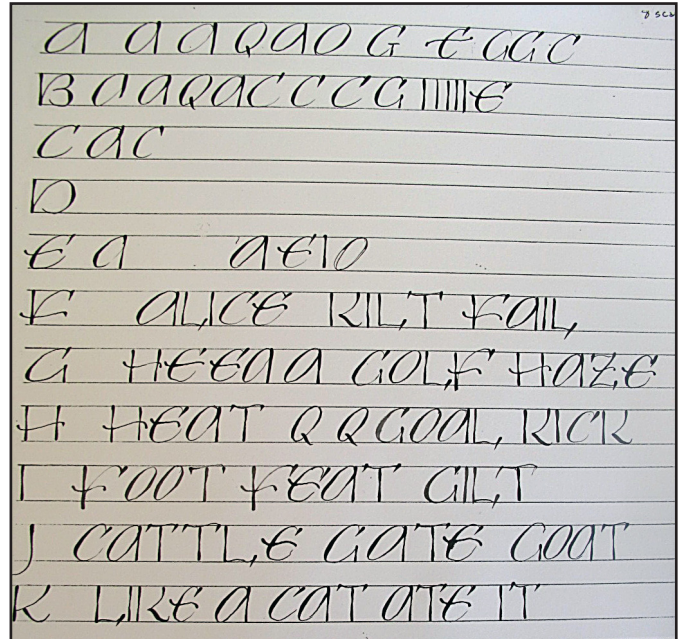 A A A Q A O G E G G C
B A A Q A C C C G I I I I I I E
C A C
D
E A A E I O
F ALICE KILT FAIL
G HEEA A GOLF HAZE
H HEAT Q Q GOAL KICK
I FOOT FEAT GILT
J CATTLE GATE GOAT
K LIKE A CAT ATE IT